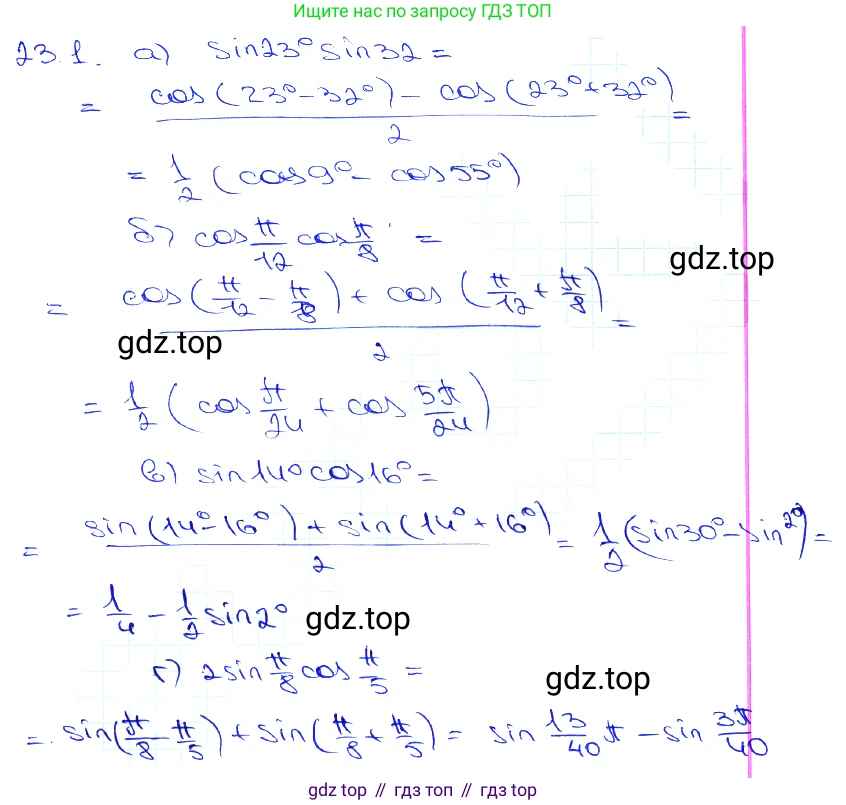 Ищите нас по запросу ГДЗ ТОП
23.1. а) sin23° sin32 =
= (cos(23°-32°) - cos(23°+32°))/2 =
= 1/2 (cos9° - cos55°)
б) cos π/12 cos π/8 =
gdz.top
= (cos(π/12 - π/8) + cos(π/12 + π/8))/2 =
gdz.top
= 1/2 (cos π/24 + cos 5π/24)
в) sin14° cos16° =
= (sin(14°-16°) + sin(14°+16°))/2 = 1/2 (sin30° - sin2°) =
= 1/4 - 1/2 sin2°
gdz.top
г) 2sin π/8 cos π/5 =
gdz.top
= sin(π/8 - π/5) + sin(π/8 + π/5) = sin 13/40 π - sin 3π/40
gdz.top // гдз топ // гдз top